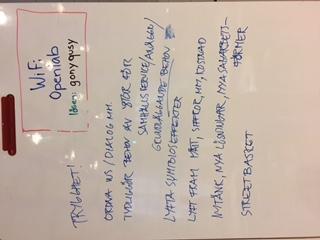 WiFi
Openlab
lösen: gonyqusy
TRYGGHET!
ORDNA WS/DIALOG MM.
TYDLIGGÖR BEHOV AV STÖD FÖR
SAMHÄLLSSERVICE/ANLÄGG/
GRUNDLÄGGANDE BEHOV
LYFTA SYMBIOSEFFEKTER
LYFT FRAM MÅTT, SIFFROR, MM, KOSTNAD
INTÄNK, NYA LÖSNINGAR, NYA SAMARBETS-
FORMER
STREETBASKET